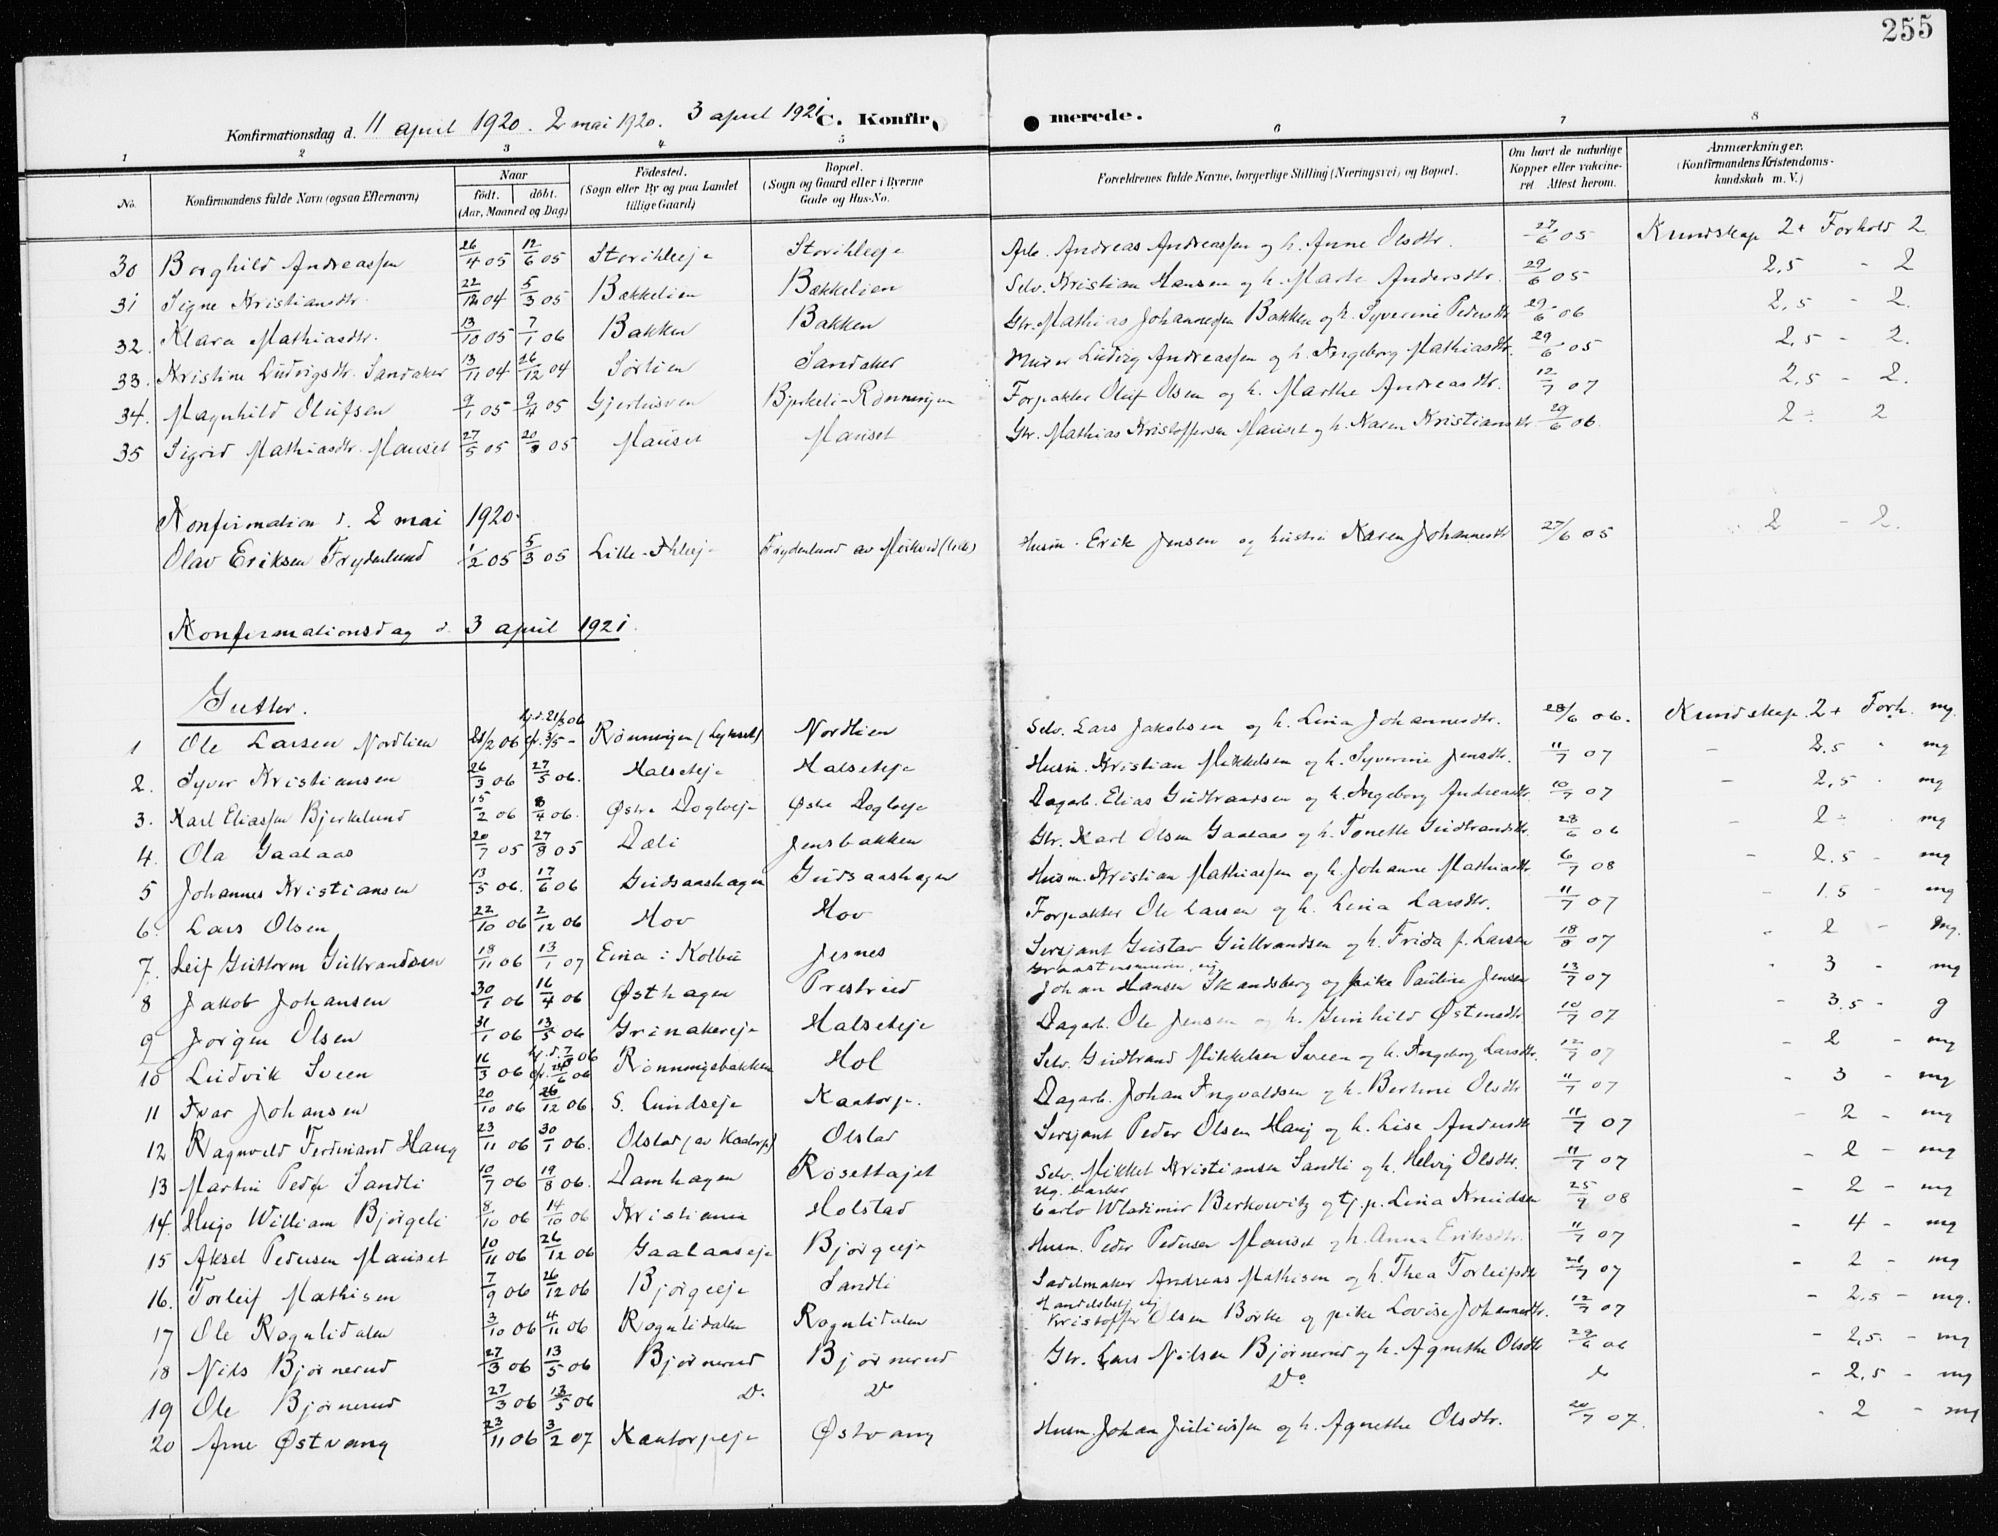 255
Konfirmationsdag d. 11 april 1920. 2 mai 1920. 3 april 1921 C. Konfir merede.
1 2 3 4 5 6 7 8
No. Konfirmandens fulde Navn (ogsaa Efternavn) Naar født. døbt. (Aar, Maaned og Dag) Fødested. (Sogn eller By og paa Landet tillige Gaard) Bopæl. (Sogn og Gaard eller i Byerne Gade og Hus-No. Forældrenes fulde Navne, borgerlige Stilling (Næringsvei) og Bopæl. Om havt de naturlige Kopper eller vakcineret. Attest herom. Anmærkninger. (Konfirmandens Kristendomskundskab m. V.)
30 Borghild Andreassen 26/4 05 12/6 05 Storihleeje Storihleeje Arb. Andreas Andreassen og h. Anne Olsdtr. 27/6 05 Kundskap 2+ Forhold 2
31 Signe Kristiansdtr. 22/12 04 5/3 05 Bækkelien Bækkelien Selv. Kristian Hansen og h. Marte Andersdtr. 29/6 05 2,5 - 2
32. Klara Mathiasdtr. 13/10 05 7/1 06 Bakken Bakken Gbr. Mathias Johannessen Bakken og h. Syverine Pedersdtr 29/6 06 2,5 - 2.
33. Kristine Ludvigsdtr. Sandaker 13/11 04 26/12 04 Sørlien Sandaker Murer Ludvig Andreassen og h. Ingeborg Mathiasdtr. 29/6 05 2,5 - 2.
34. Magnhild Olufsen 9/1 05 9/4 05 Gjerlusven Bjerkeli-Rønningen Forpakter Oluf Olsen og h. Marthe Andreasdtr. 12/7 07 2,5 - 2.
35 Sigrid Mathiasdtr. Mauset 27/5 05 20/8 05 Mauset Mauset Gbr. Mathias Kristoffersen Mauset og h. Karen Kristiansdtr 29/6 06. 2 ÷ 2
Konfirmation d. 2 mai 1920.
Olav Eriksen Frydenlund 1/2 05 5/3 05 Lille- Frydenlund av Husm. Erik Jensen og hustru Karen Johannesdtr 27/6 05 2 - 2.
Konfirmationsdag d. 3 april 1921.
Gutter.
1 Ole Larsen Nordlien 28/2 06 hj.d. 21/3 06 fr. 3/5 - Rønningen Nordlien Selv. Lars Jakobsen og h. Lina Johannesdtr. 28/6 06. Kundskap 2+ Forh. mg.
2. Syver Kristiansen 26/3 06 27/5 06. Halseteje Halseteje Husm. Kristian Mikkelsen og h. Syverine Jensdtr. 11/7 07 - 2,5 - mg
3. Karl Eliassen Bjerkelund 15/2 06 8/4 06. Østre Dogleeje Østre Dogleeje Dagarb. Elias Gudbrandsen og h. Ingeborg Andreasdtr. 10/7 07 - 2,5 - mg
4. Ola Gaalaas 20/7 05 27/8 05 Dæli Jensbakken Gbr. Karl Olsen Gaalaas og h. Tonette Gudbrandsdtr. 28/6 06 - 2 ÷ mg
5 Johannes Kristiansen 13/5 06. 17/6 06 Gudsaashagen Gudsaashagen Husm. Kristian Mathiassen og h. Johanne Mathiasdtr 6/7 08 - 2,5 - mg
6. Lars Olsen 22/10 06 2/12 06 Hov Hov Forpakter Ole Larsen og h. Lina Larsdtr. 11/7 07 - 1.5 - mg
7. Leif Guttorm Gulbrandsen 18/11 06 13/1 07 Eina i Kolbu Jesnes Sersjant Gustav Gulbrandsen og h. Frida f. Larsen 18/8 07 - 2 - mg.
8 Jakob Johansen 30/1 06 16/4 06 Østhagen Prestrud Johan Hansen Skandsberg og pike Pauline Jensen 13/7 07 - 3 - mg
9 Jørgen Olsen 31/1 06 13/5 06 Grinakereje Halseteje Dagarb. Ole Jensen og h. Gunhild Østensdtr 10/7 07 - 3.5 - g
10 Ludvik Sveen 16/3 06 Rønningsbakken Hol Selv. Gudbrand Mikkelsen Sveen og h. Ingeborg Larsdtr. 12/7 07 - 2 - mg
11 Ivar Johansen 20/10 06 26/12 06. S. Lundseje Kantorp. Dagarb. Johan Ingvaldsen og h. Bertine Olsdtr 11/7 07 - 3 - mg
12 Ragnvald Ferdinand Haug 23/11 06 30/1 06. Olstad Olstad Sersjant Peder Olsen Haug og h. Lise Andersdtr 11/7 07 - 2 - mg
13 Martin Peder Sandli 10/7 06 19/8 06. Damhagen Røsettajet Selv. Mikkel Kristiansen Sandli og h. Helvig Olsdtr. 11/7 07 - 2 - mg
14. Hugo William Bjørgeli 8/10 06 14/10 06 Kristiania Holstad ug. barber Carlo Wladimir Berkowitz og tj.p. Lina Knudsen 25/9 08 - 2 - mg
15 Aksel Pedersen Mauset 10/11 06 26/12 06 Gaalaaseje Bjørgeeje Husm. Peder Pedersen Mauset og h. Anna Eriksdtr. 11/7 07 - 4 - mg
16. Torleif Mathisen 7/9 06 26/12 06 Bjørgeeje Sandli Sadelmaker Andreas Mathisen og h. Thea Torleifsdtr 21/7 07 - 2 - mg
17 Ole Rognlidalen 3/10 06 4/11 06 Rognlidalen Rognlidalen Handelsbetj. ug. Kristoffer Olsen Børke og pike Lovise Johannesdtr. 12/7 07 - 2,5 - mg.
18 Nils Bjørnerud 27/3 06 13/5 06 Bjørnerud Bjørnerud Gbr. Lars Nilsen Bjørnerud og h. Agnethe Olsdtr 29/6 06 - 2,5. - mg
19 Ole Bjørnerud 27/3 06 13/5 06 Do Do Do do - 2,5 - mg
20 Arne Østvang 23/11 06 3/2 07 Kantorpeje Østvang Husm. Johan Juliussen og h. Agnethe Olsdtr. 20/7 07. - 2 - mg